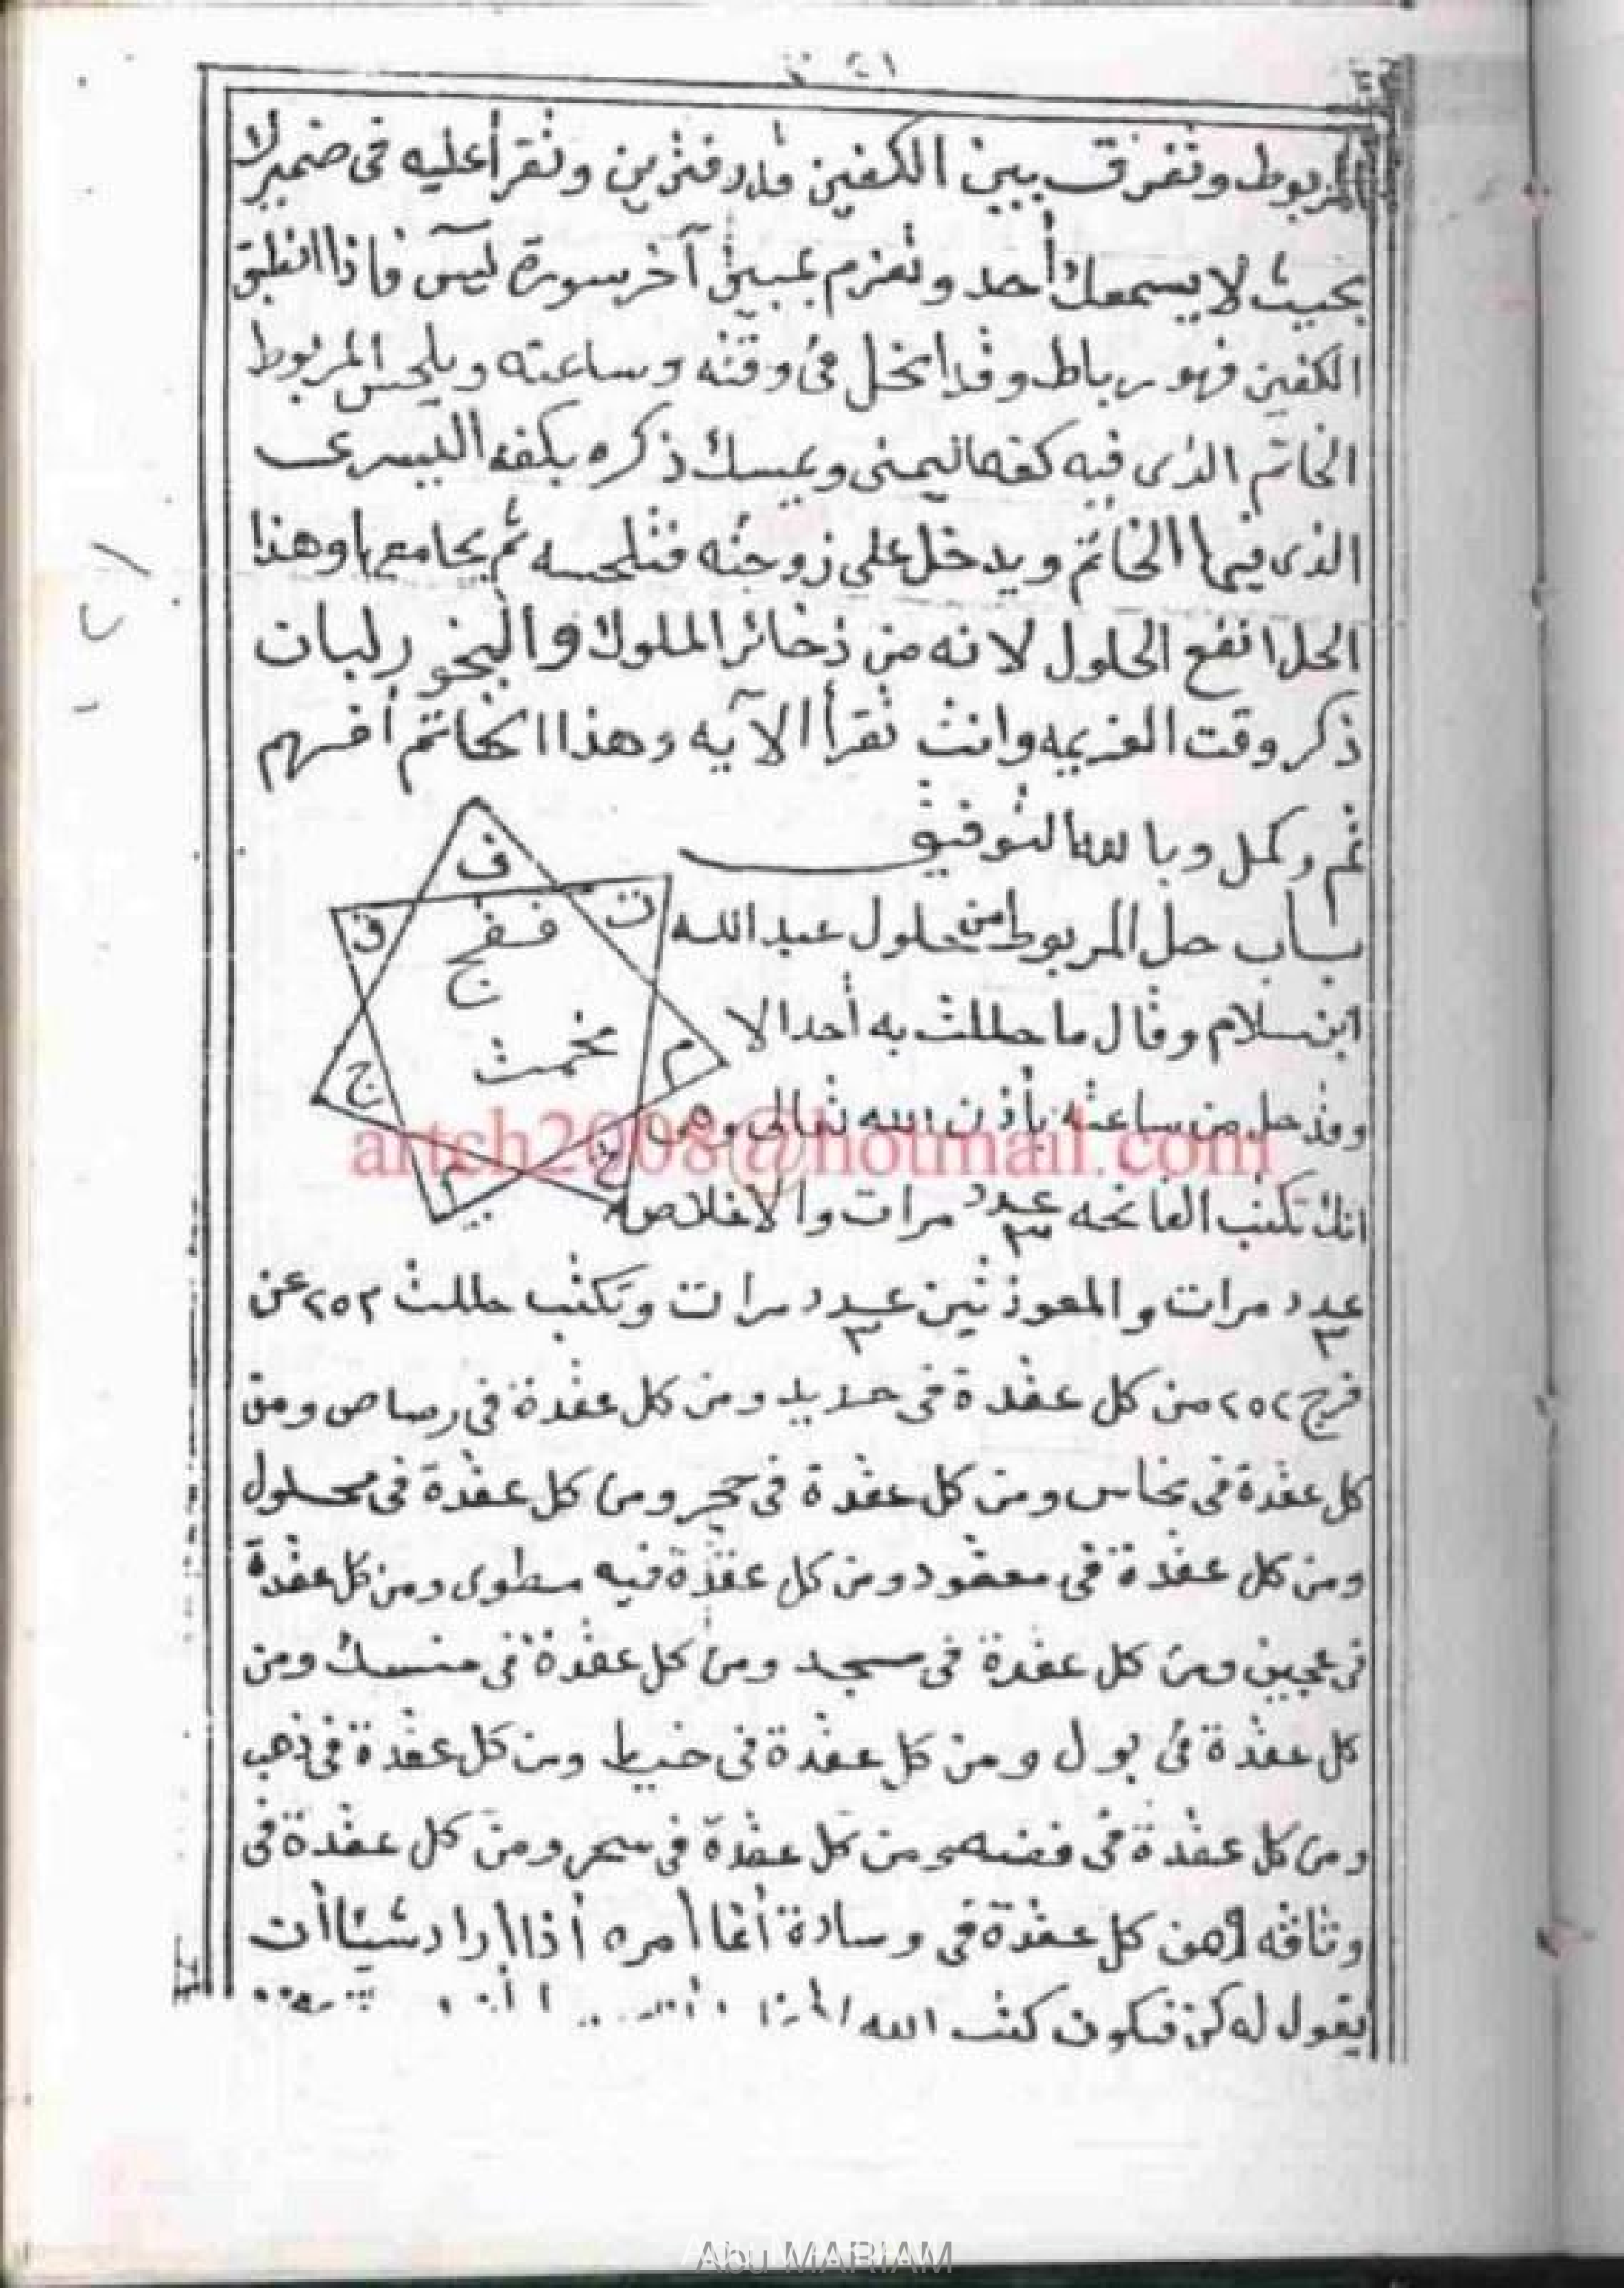 المربوط وتفرق بين الكفين قدر فترين وتقرأ عليه فى ضميرك
بحيث لا يسمعك أحد وتعزم بمبين آخر سورة يس فإذا انطبق
الكفين فهو رباط وقد انحل فى وقته وساعته ويلحس المربوط
الخاتم الذى فيه كفه اليمنى ويمسك ذكره بكفه اليسرى
الذى فيها الخاتم ويدخل على زوجته فتلحسه ثم يجامعها وهذا
الحل انفع الحلول لانه من ذخائر الملوك والبخور لبان
ذكر وقت العزيمه وانت تقرأ الآيه وهذا الخاتم أفهم
تم وكمل وبالله التوفيق
ف
ت
ق
فقج
مخمت
م
ج
باب حل المربوط من حلول عبد الله
ابن سلام وقال ما حللت به أحدا الا
وقد حل من ساعته بأذن الله تعالى وهى
انك تكتب الفاتحه عدد ٣ مرات والاخلاص
عدد ٣ مرات والمعوذتين عدد ٣ مرات وتكتب حللت ٢٥٢ عن
فرج ٢٥٢ من كل عقدة فى حديد ومن كل عقدة فى رصاص ومن
كل عقدة فى نحاس ومن كل عقدة فى حجر ومن كل عقدة فى محلول
ومن كل عقدة فى معقود ومن كل عقدة فيه مطوى ومن كل عقدة
فى عجين ومن كل عقدة فى مسجد ومن كل عقدة فى منسك ومن
كل عقدة فى بول ومن كل عقدة فى خياط ومن كل عقدة فى ذهب
ومن كل عقدة فى فضه ومن كل عقدة فى سحر ومن كل عقدة فى
وثاقه ومن كل عقدة فى وسادة أنما أمره أذا اراد شيئا أن
يقول له كن فيكون كتب الله
artch2008@hotmail.com
Abu MARIAM